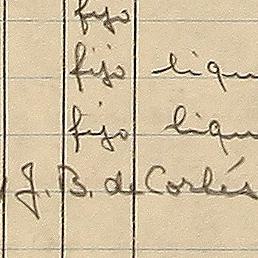 fijo
fijo liqu
fijo liqu
J. B. de Cortés